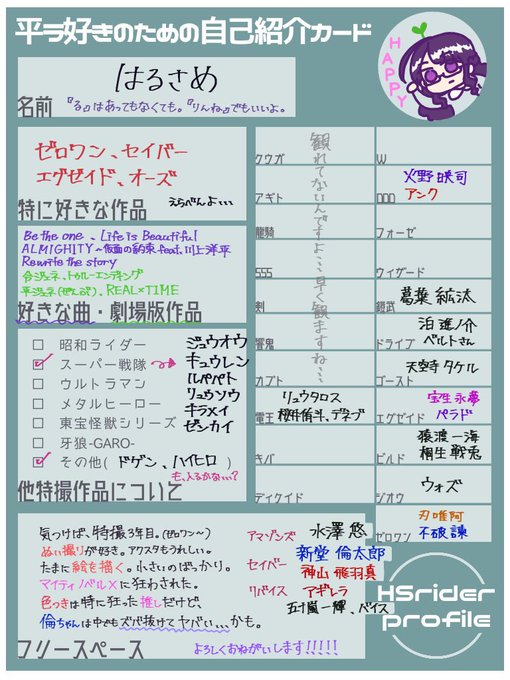 平ラ好きのための自己紹介カード
HAPPY
はるさめ
名前 『る』はあってもなくても。『りんね』でもいいよ。
ゼロワン、セイバー
エグゼイド、オーズ
特に好きな作品 えらべんよ…
Be the one、Life is Beautiful
ALMIGHTY~仮面の約束 feat.川上洋平
Rewrite the story
令ジェネ、トゥルーエンディング
平ジェネ(ぜんぶ)、REAL×TIME
好きな曲・劇場版作品
昭和ライダー
スーパー戦隊
ウルトラマン
メタルヒーロー
東宝怪獣シリーズ
牙狼-GARO-
その他( ドゲン、ハイヒロ )
も、入るかない…?
ジュウオウ
キュウレン
ルパパト
リュウソウ
キラメイ
ゼンカイ
他特撮作品について
観れてないんですよ…早く観ますね…
クウガ
アギト
龍騎
555
剣
響鬼
カブト
電王 リュウタロス
桜井侑斗、デネブ
キバ
ディケイド
W
OOO 火野映司
アンク
フォーゼ
ウィザード
鎧武 葛葉紘汰
ドライブ 泊進ノ介
ベルトさん
ゴースト 天空寺タケル
エグゼイド 宝生永夢
パラド
ビルド 猿渡一海
桐生戦兎
ジオウ ウォズ
ゼロワン 刃唯阿
不破諫
アマゾンズ 水澤悠
セイバー 新堂倫太郎
神山飛羽真
リバイス アギレラ
五十嵐一輝、バイス
気つけば、特撮3年目。(ゼロワン~)
ぬい撮りが好き。アクスタもうれしい。
たまに絵を描く。小さいのばっかり。
マイティノベルXに狂わされた。
色つきは特に狂った推しだけど、
倫ちゃんは中でもズバ抜けてヤバい…かも。
フリースペース
よろしくおねがいします!!!!!
HSrider
profile